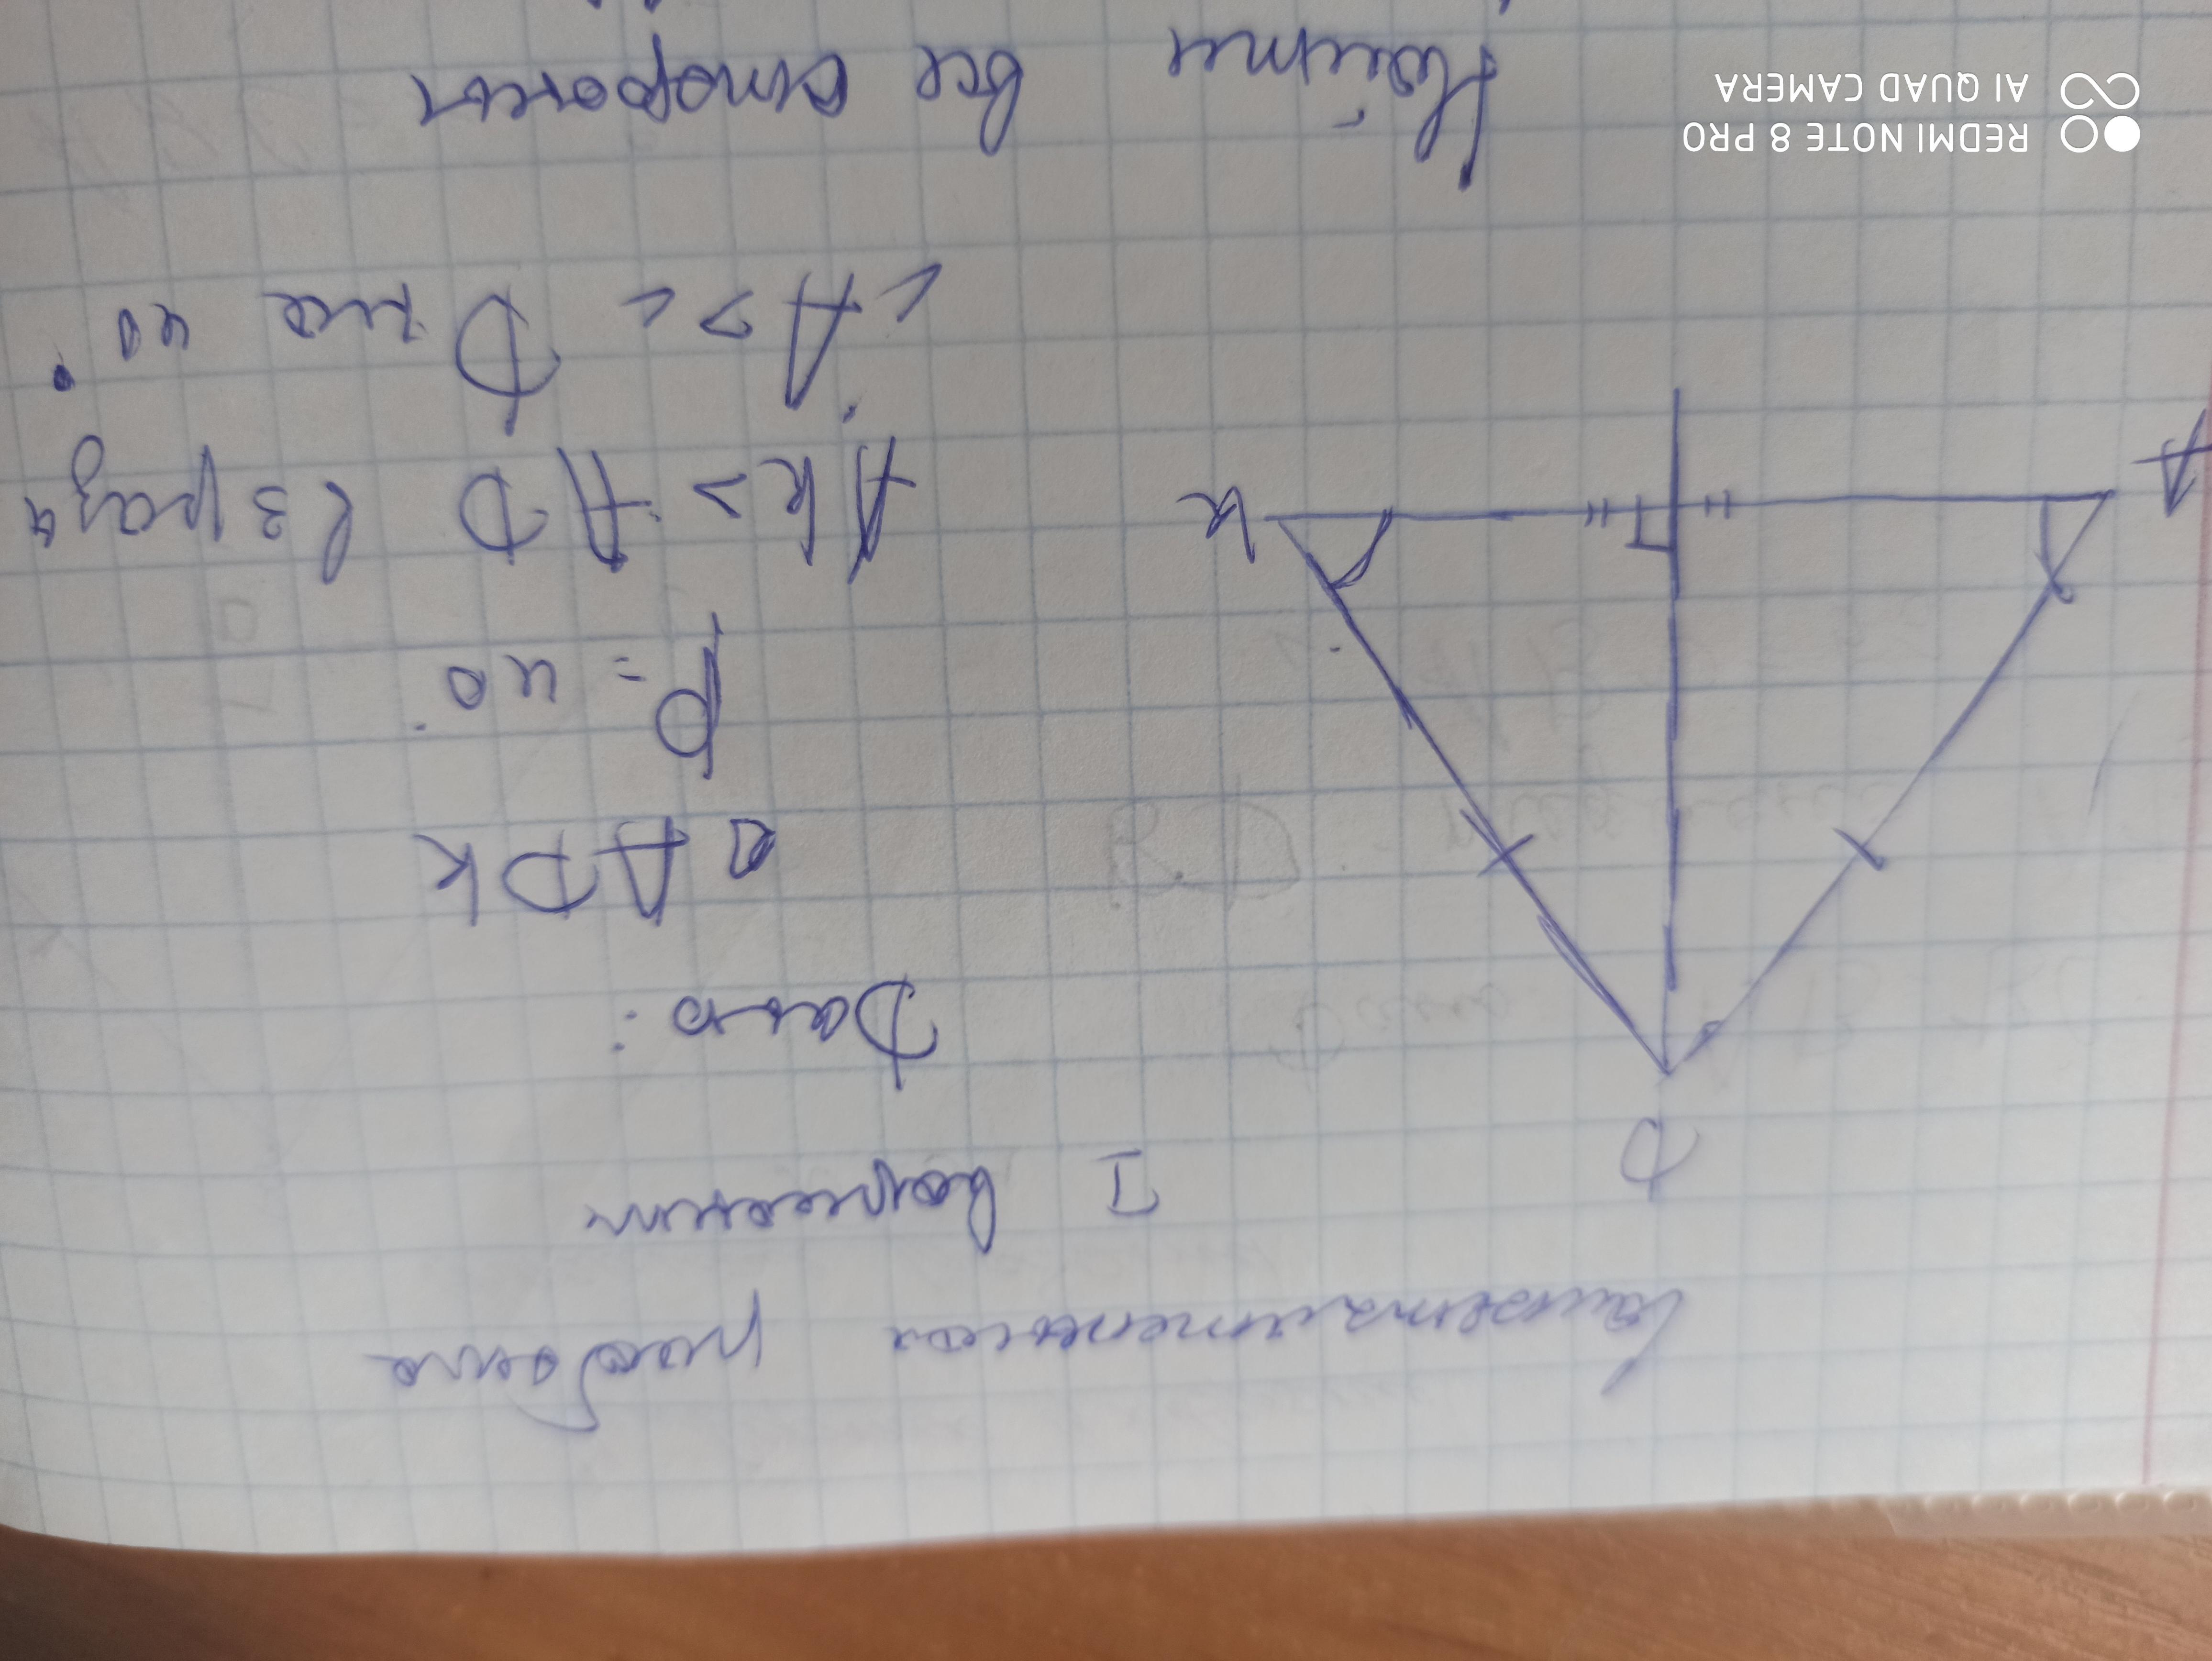 Самостоятельная работа
I вариант
D
Дано:
△ ADK
P = 40
AK > AD в 3 раза
∠A > ∠ D на 40°
A
K
Найти все стороны
REDMI NOTE 8 PRO
AI QUAD CAMERA